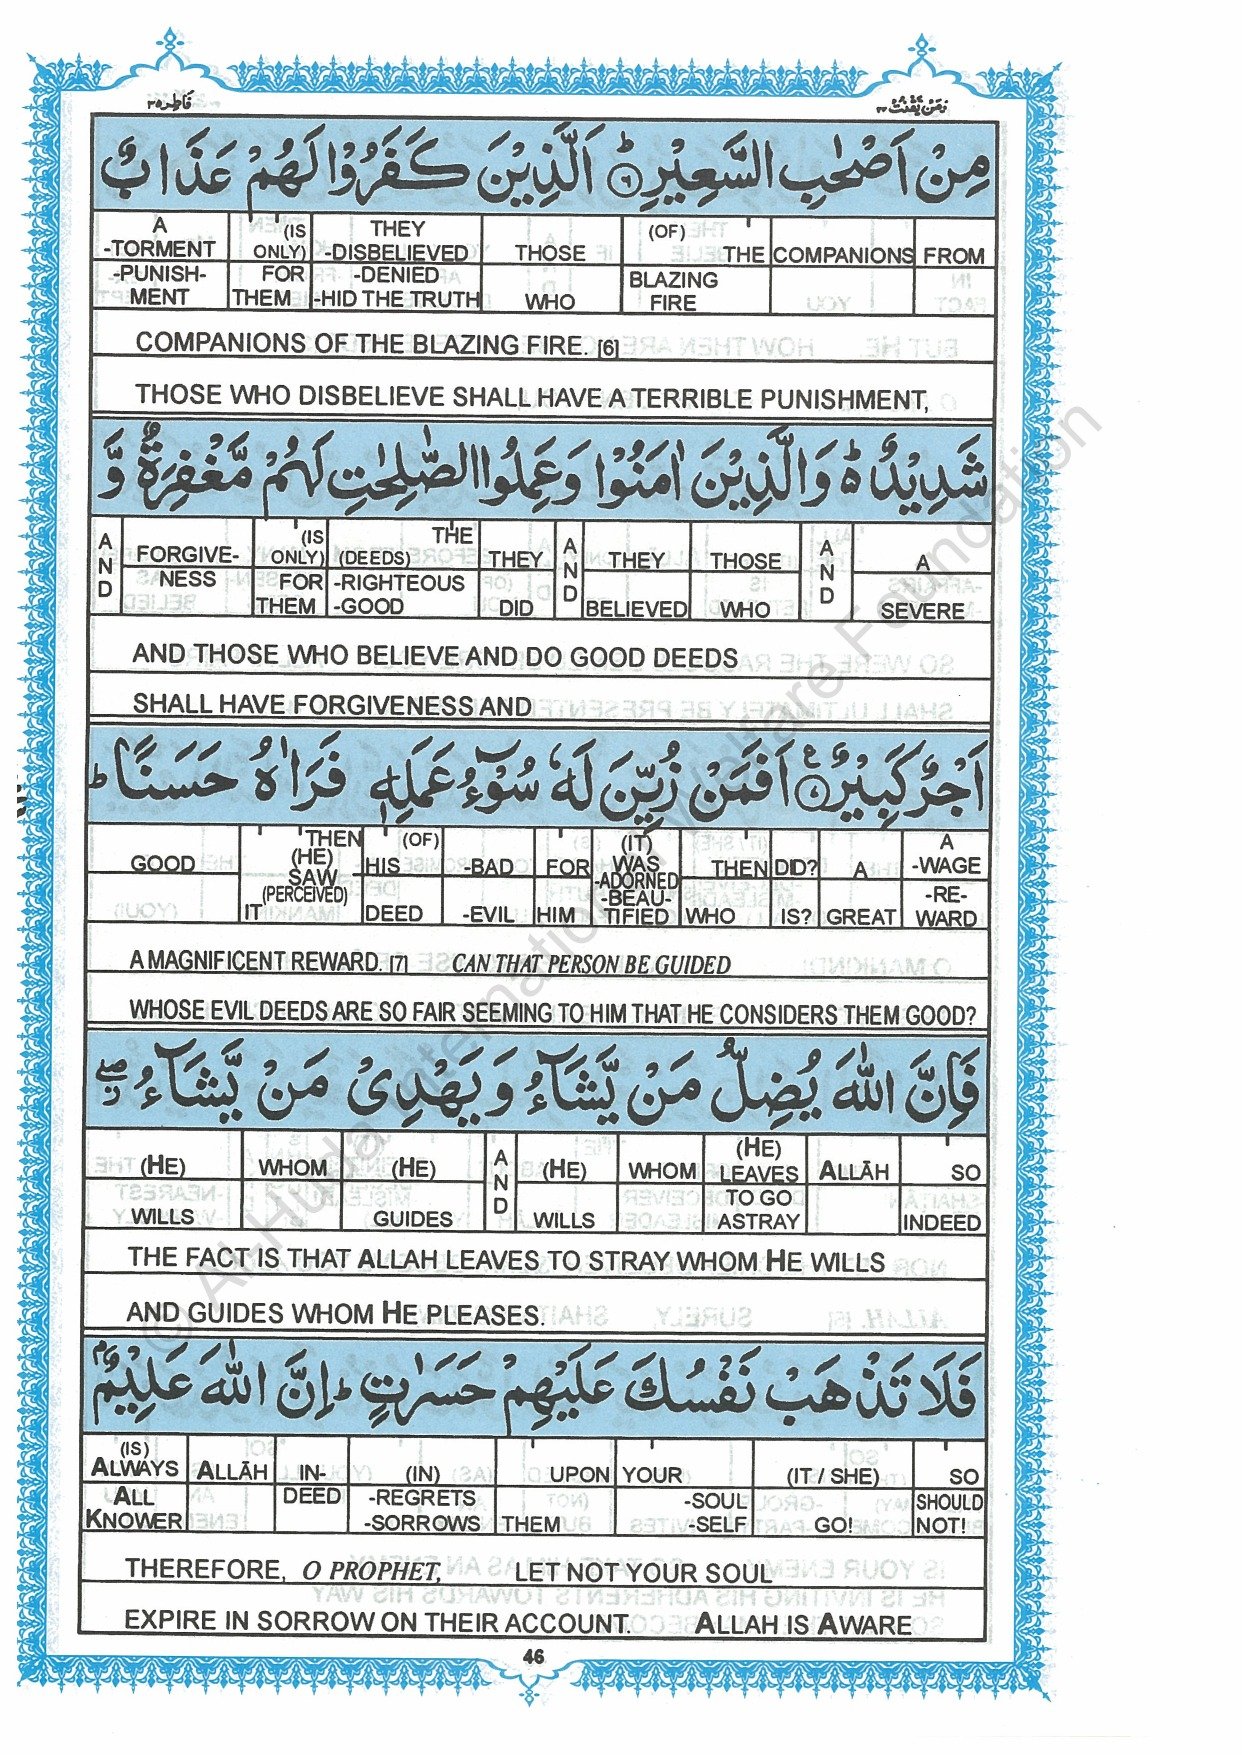 فاطر ٣٥
ومن يقنت ٢٢
مِنْ اَصْحٰبِ السَّعِيْرِ ؕ ۶ اَلَّذِيْنَ كَفَرُوْا لَهُمْ عَذَابٌ
A -TORMENT -PUNISH-MENT | (IS ONLY) FOR THEM | THEY -DISBELIEVED -DENIED -HID THE TRUTH | THOSE WHO | (OF) THE BLAZING FIRE | COMPANIONS | FROM
COMPANIONS OF THE BLAZING FIRE. [6]
THOSE WHO DISBELIEVE SHALL HAVE A TERRIBLE PUNISHMENT,
شَدِيْدٌ ؕ وَالَّذِيْنَ اٰمَنُوْا وَعَمِلُوا الصّٰلِحٰتِ لَهُمْ مَّغْفِرَةٌ وَّ
AND | FORGIVE-NESS | (IS ONLY) FOR THEM | THE (DEEDS) -RIGHTEOUS -GOOD | THEY DID | AND | THEY BELIEVED | THOSE WHO | AND | A SEVERE
AND THOSE WHO BELIEVE AND DO GOOD DEEDS
SHALL HAVE FORGIVENESS AND
اَجْرٌ كَبِيْرٌ ۷ ع اَفَمَنْ زُيِّنَ لَهٗ سُوْٓءُ عَمَلِهٖ فَرَاٰهُ حَسَنًا ؕ
GOOD | THEN (HE) SAW (PERCEIVED) IT | (OF) HIS DEED | -BAD -EVIL | FOR HIM | (IT) WAS -ADORNED -BEAU-TIFIED | THEN WHO | DID? IS? | A GREAT | A -WAGE -RE-WARD
A MAGNIFICENT REWARD. [7] CAN THAT PERSON BE GUIDED
WHOSE EVIL DEEDS ARE SO FAIR SEEMING TO HIM THAT HE CONSIDERS THEM GOOD?
فَاِنَّ اللّٰهَ يُضِلُّ مَنْ يَّشَآءُ وَيَهْدِىْ مَنْ يَّشَآءُ ۖ
(HE) WILLS | WHOM | (HE) GUIDES | AND | (HE) WILLS | WHOM | (HE) LEAVES TO GO ASTRAY | ALLĀH | SO INDEED
THE FACT IS THAT ALLAH LEAVES TO STRAY WHOM HE WILLS
AND GUIDES WHOM HE PLEASES.
فَلَا تَذْهَبْ نَفْسُكَ عَلَيْهِمْ حَسَرٰتٍ ؕ اِنَّ اللّٰهَ عَلِيْمٌۢ
(IS) ALWAYS ALL KNOWER | ALLĀH | IN-DEED | (IN) -REGRETS -SORROWS | UPON THEM | YOUR -SOUL -SELF | (IT / SHE) GO! | SO SHOULD NOT!
THEREFORE, O PROPHET, LET NOT YOUR SOUL
EXPIRE IN SORROW ON THEIR ACCOUNT. ALLAH IS AWARE
46
© Al-Huda International Welfare Foundation